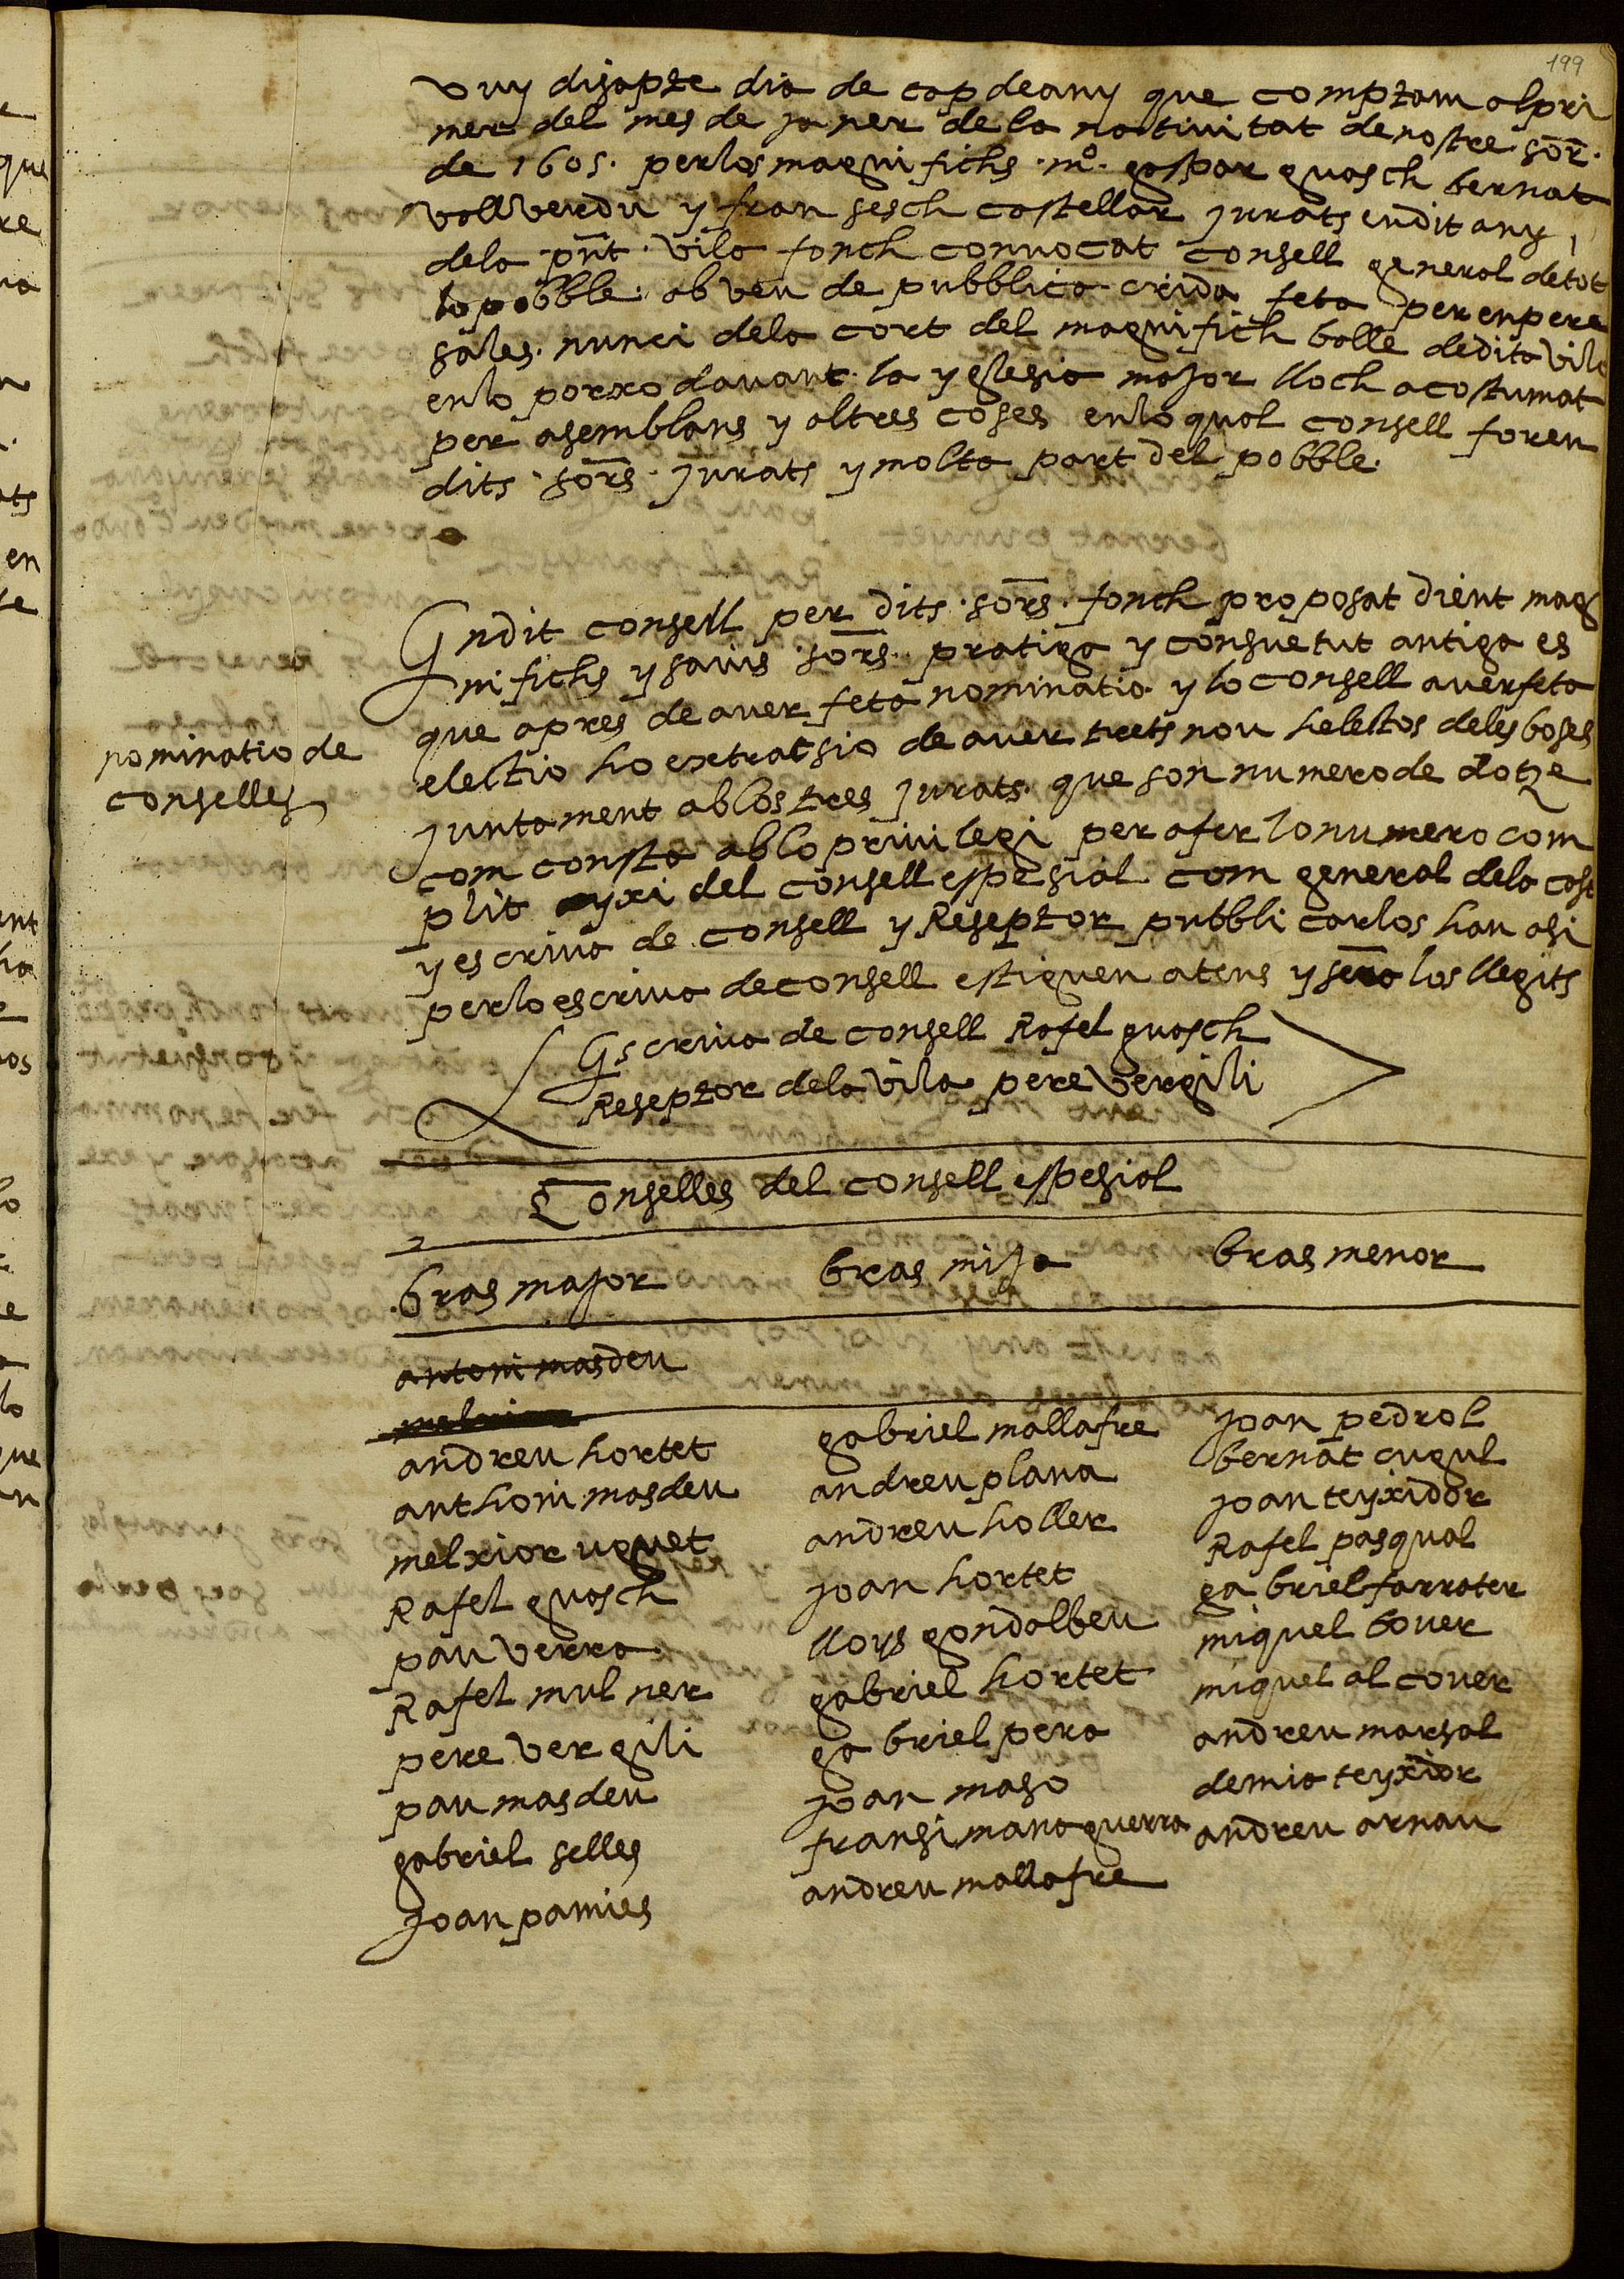 199
vuy disapte dia de cap de any que comptam al pri
mer del mes de janer de la nativitat de nostre sor̄.
de 1605. per los magnifichs mº. gaspar guasch bernat
vallverdu y fran sesch castellar jurats en dit any
de la pn̄t vila fonch convocat consell general de tot
lo pobble. ab veu de pubblica crida feta per en pere
sales. nunci de la cort del magnifich balle de dita vila
en lo porxo davant la yglesia major lloch acostumat
per asemblans y altres coses en lo qual consell foren
dits sors̄ jurats y molta part del pobble.
Endit consell per dits sors̄. fonch proposat dient mag
nifichs y savis sors̄. pratiga y consuetut antiga es
que apres de aver feta nominatio y lo consell aver feta
nominatio de
conselles
electio ho extratsio de aver trets nou helektos de les boses
juntament ab los tres jurats que son numero de dotze
com consta ab lo privilegi per a fer lo numero com
plit ayxi del consell espesial com general de la casa
y escriva de consell y Reseptor pubblicar los han asi
per lo escriva de consell estiguen atens y sera los llegits
Escriva de consell Rafel guasch
Reseptor de la vila pere vergili
Conselles del consell espesial
bras major bras mija bras menor
antoni masdeu
andreu hortet
anthoni masdeu
melxior uguet
Rafel guasch
pau verra
Rafel mulner
pere vergili
pau masdeu
gabriel selles
joan pamies
gabriel mallafre
andreu plana
andreu holler
joan hortet
lloys gondolbeu
gabriel hortet
gabriel pera
joan maso
fransi mana guerra
andreu mallafre
joan pedrol
bernat cugul
joan teyxidor
Rafel pasqual
gabriel farrater
miquel bover
miquel alcover
andreu marsal
demia teyxidor
andreu arnau